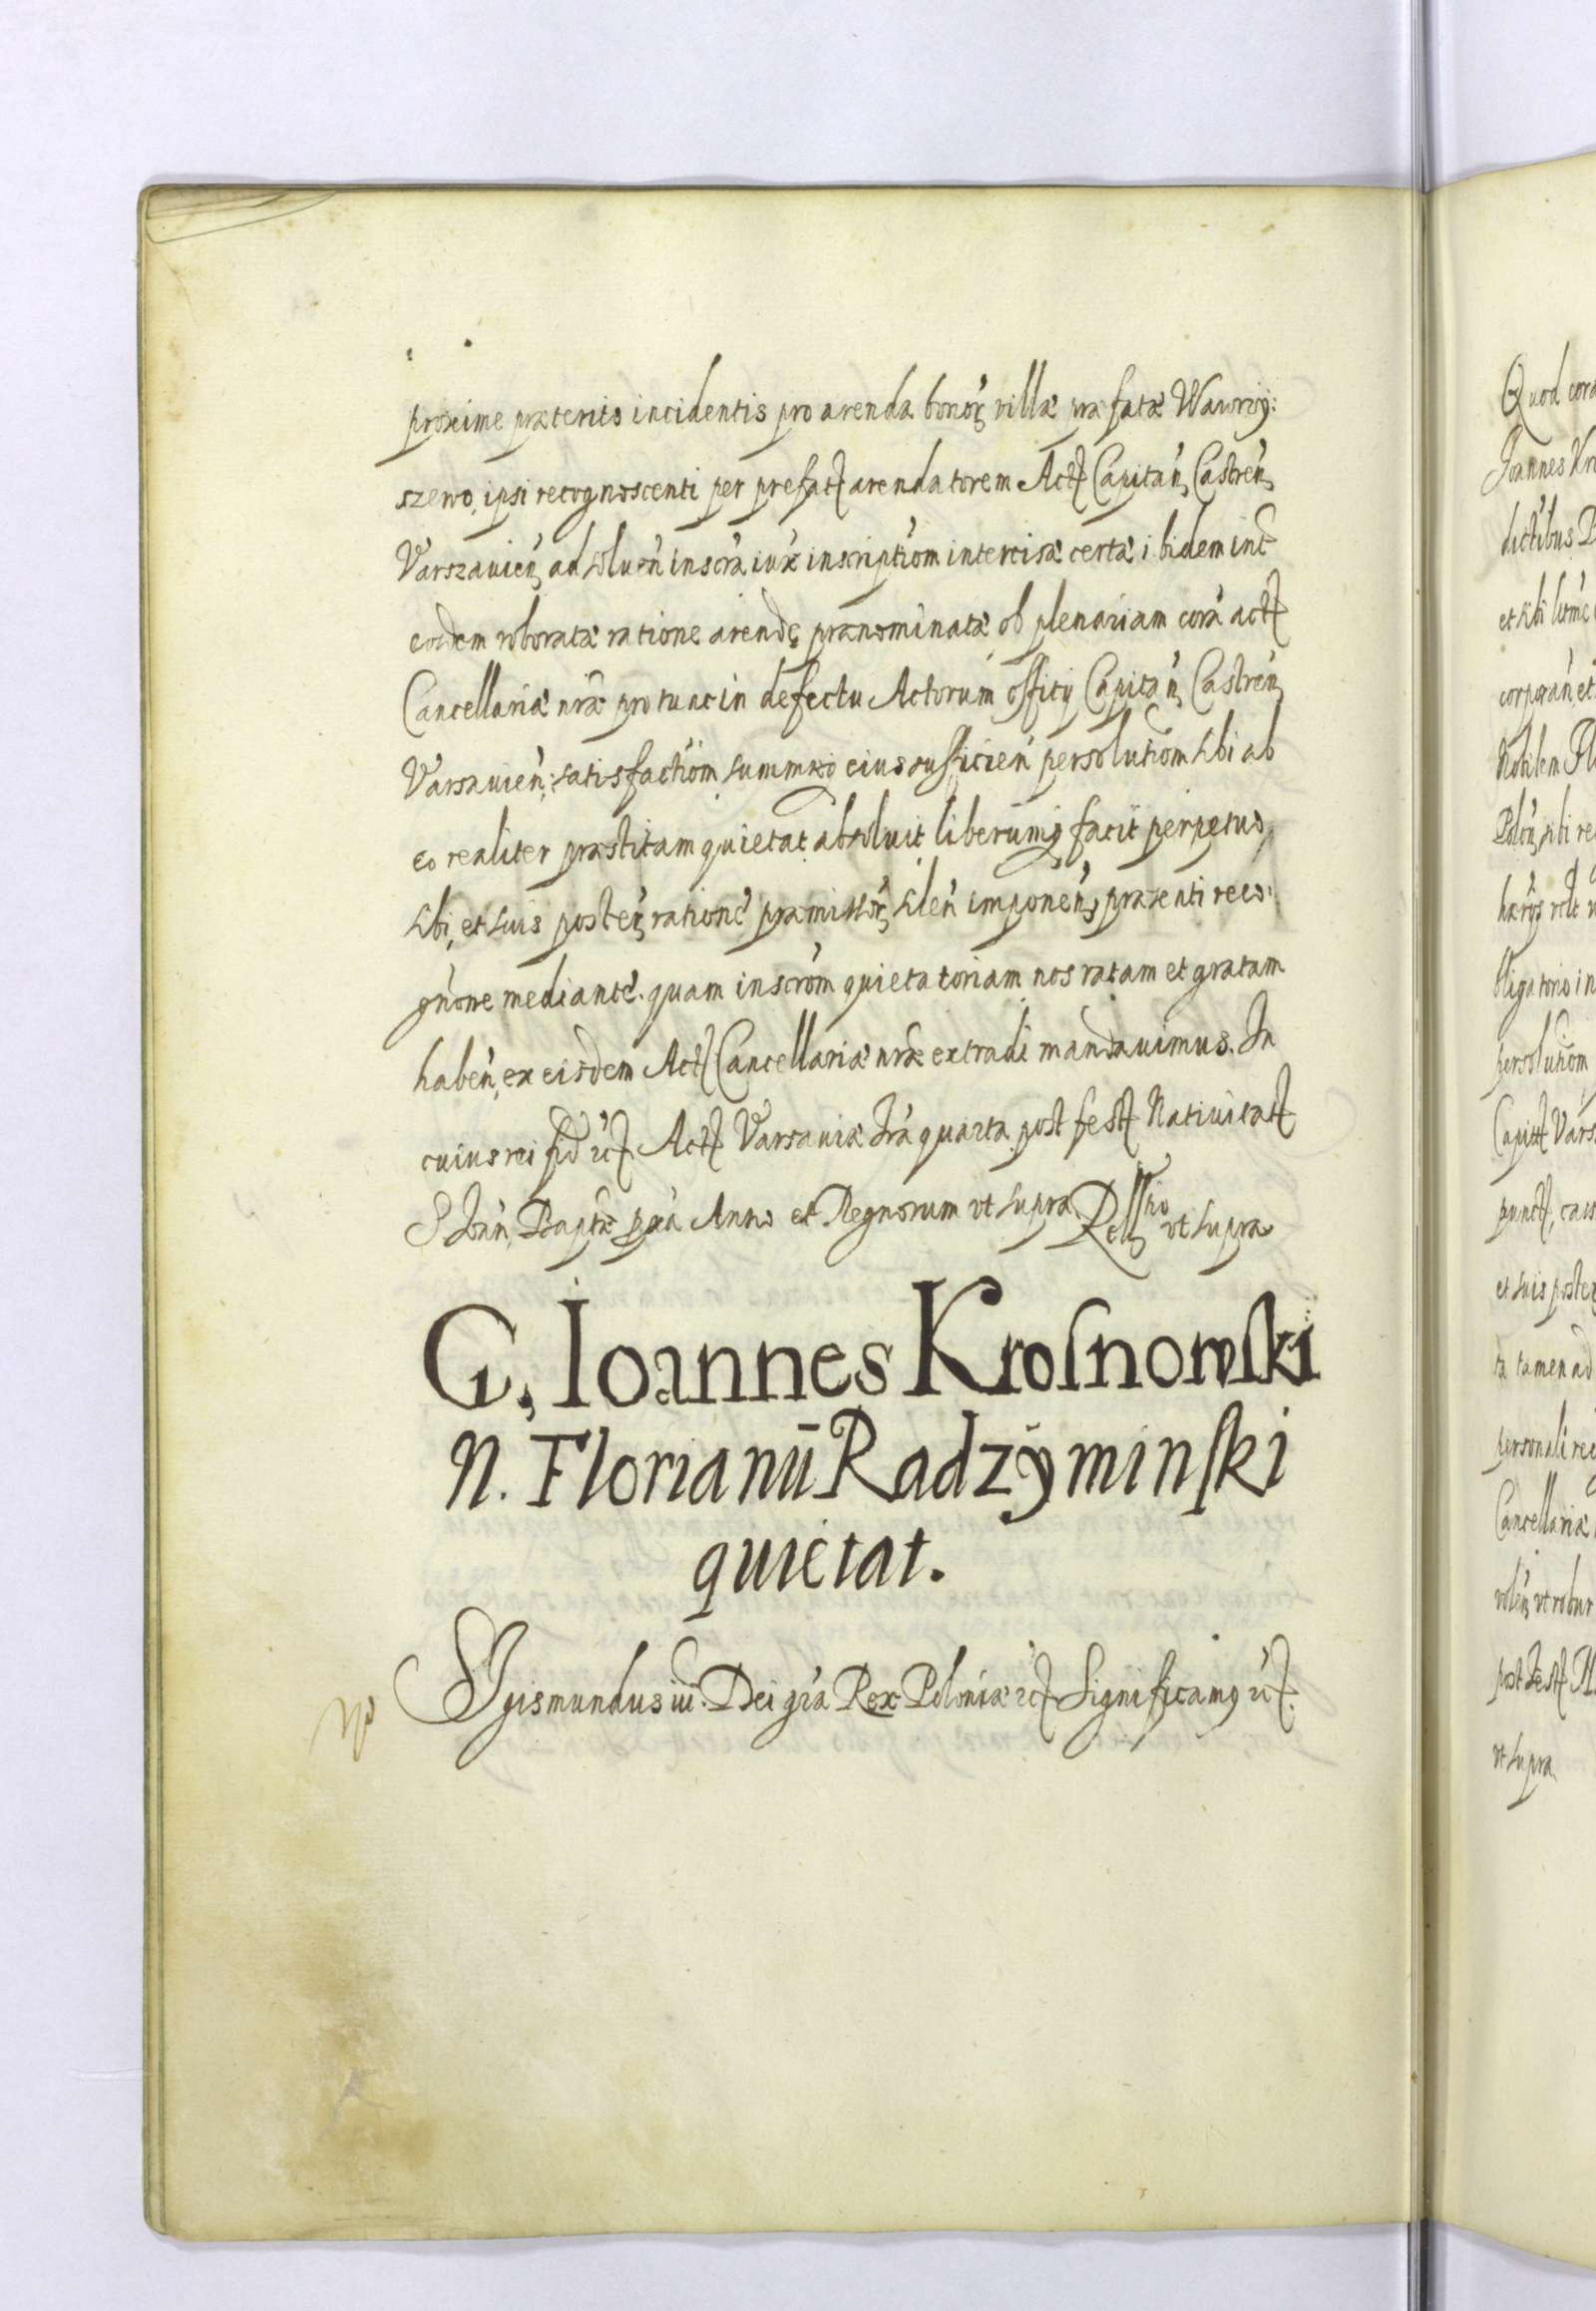 proxime præterito incidentis pro arenda bonoꝝ villæ præfatæ Wawrzy:
szewo, ipsi recognoscenti per prefat arendatorem Act Capitan Castren
Varszauien ad soluen inscra iux inscriptiom intercisæ certæ ibidem int
eosdem roboratæ ratione arendę prænominatæ ob plenariam cora act
Cancellariæ nræ pro tunc in defectu Actorum officij Capitan Castren
Varsauien: satisfactiom eius sufficien persolutiom sibi ab
eo realiter præstitam quietat absoluit liberumq facit perpetuo,
sibi, et suis poster ratione præmissoꝝ silen imponen, præsenti reco:
gnone mediante. quam inscrom quietatoriam nos ratam et gratam
haben, ex eisdem Act Cancellariæ nræ extradi mandauimus. In
cuius rei fid etc Act Varsauiæ fra quarta post fest Natiuitat
S Ioan, Baptæ pxa Anno et Regnorum vt supra Rellatio vt supra
G. Ioannes Kroſnowſki
N. Florianū Radzÿminſki
quietat.
Sigismundus iii. Dei gra Rex Poloniæ etc Significamus etc.
Quod cora
Joannes Kro
dictibus
et sibi
corporan et
Nobilem Fl
Polon, sibi re
hæros
bligatorio in
persolutiom
Capitt Vars
punct, caus
et suis poster
ta tamen ad
personali rec
Cancellariæ
volen vt robur
post fest
vt supra